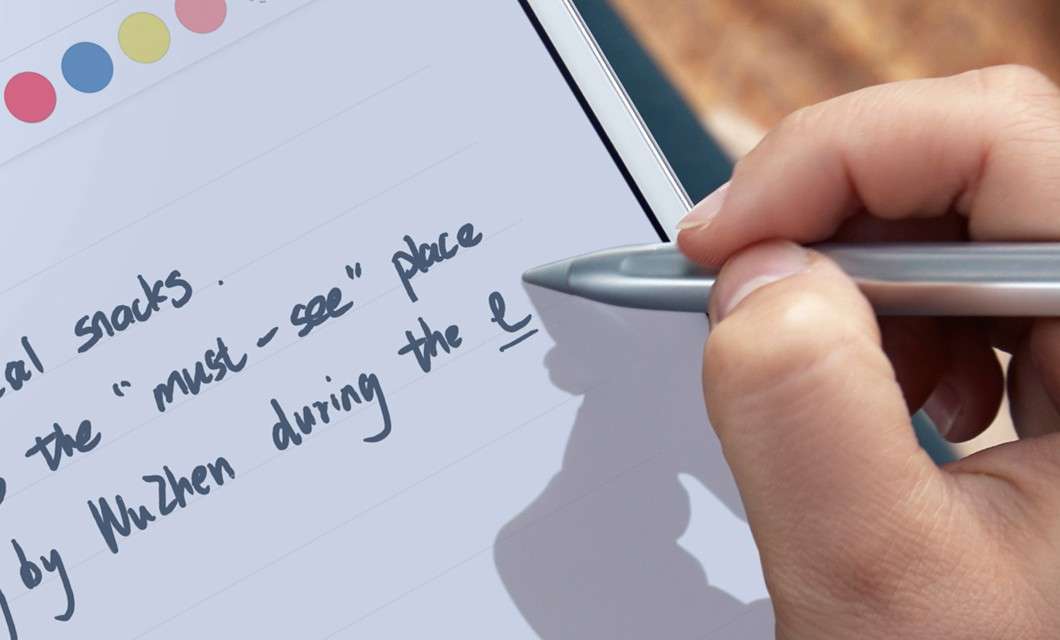 snacks.
the "must-see" place
by WuZhen during the e